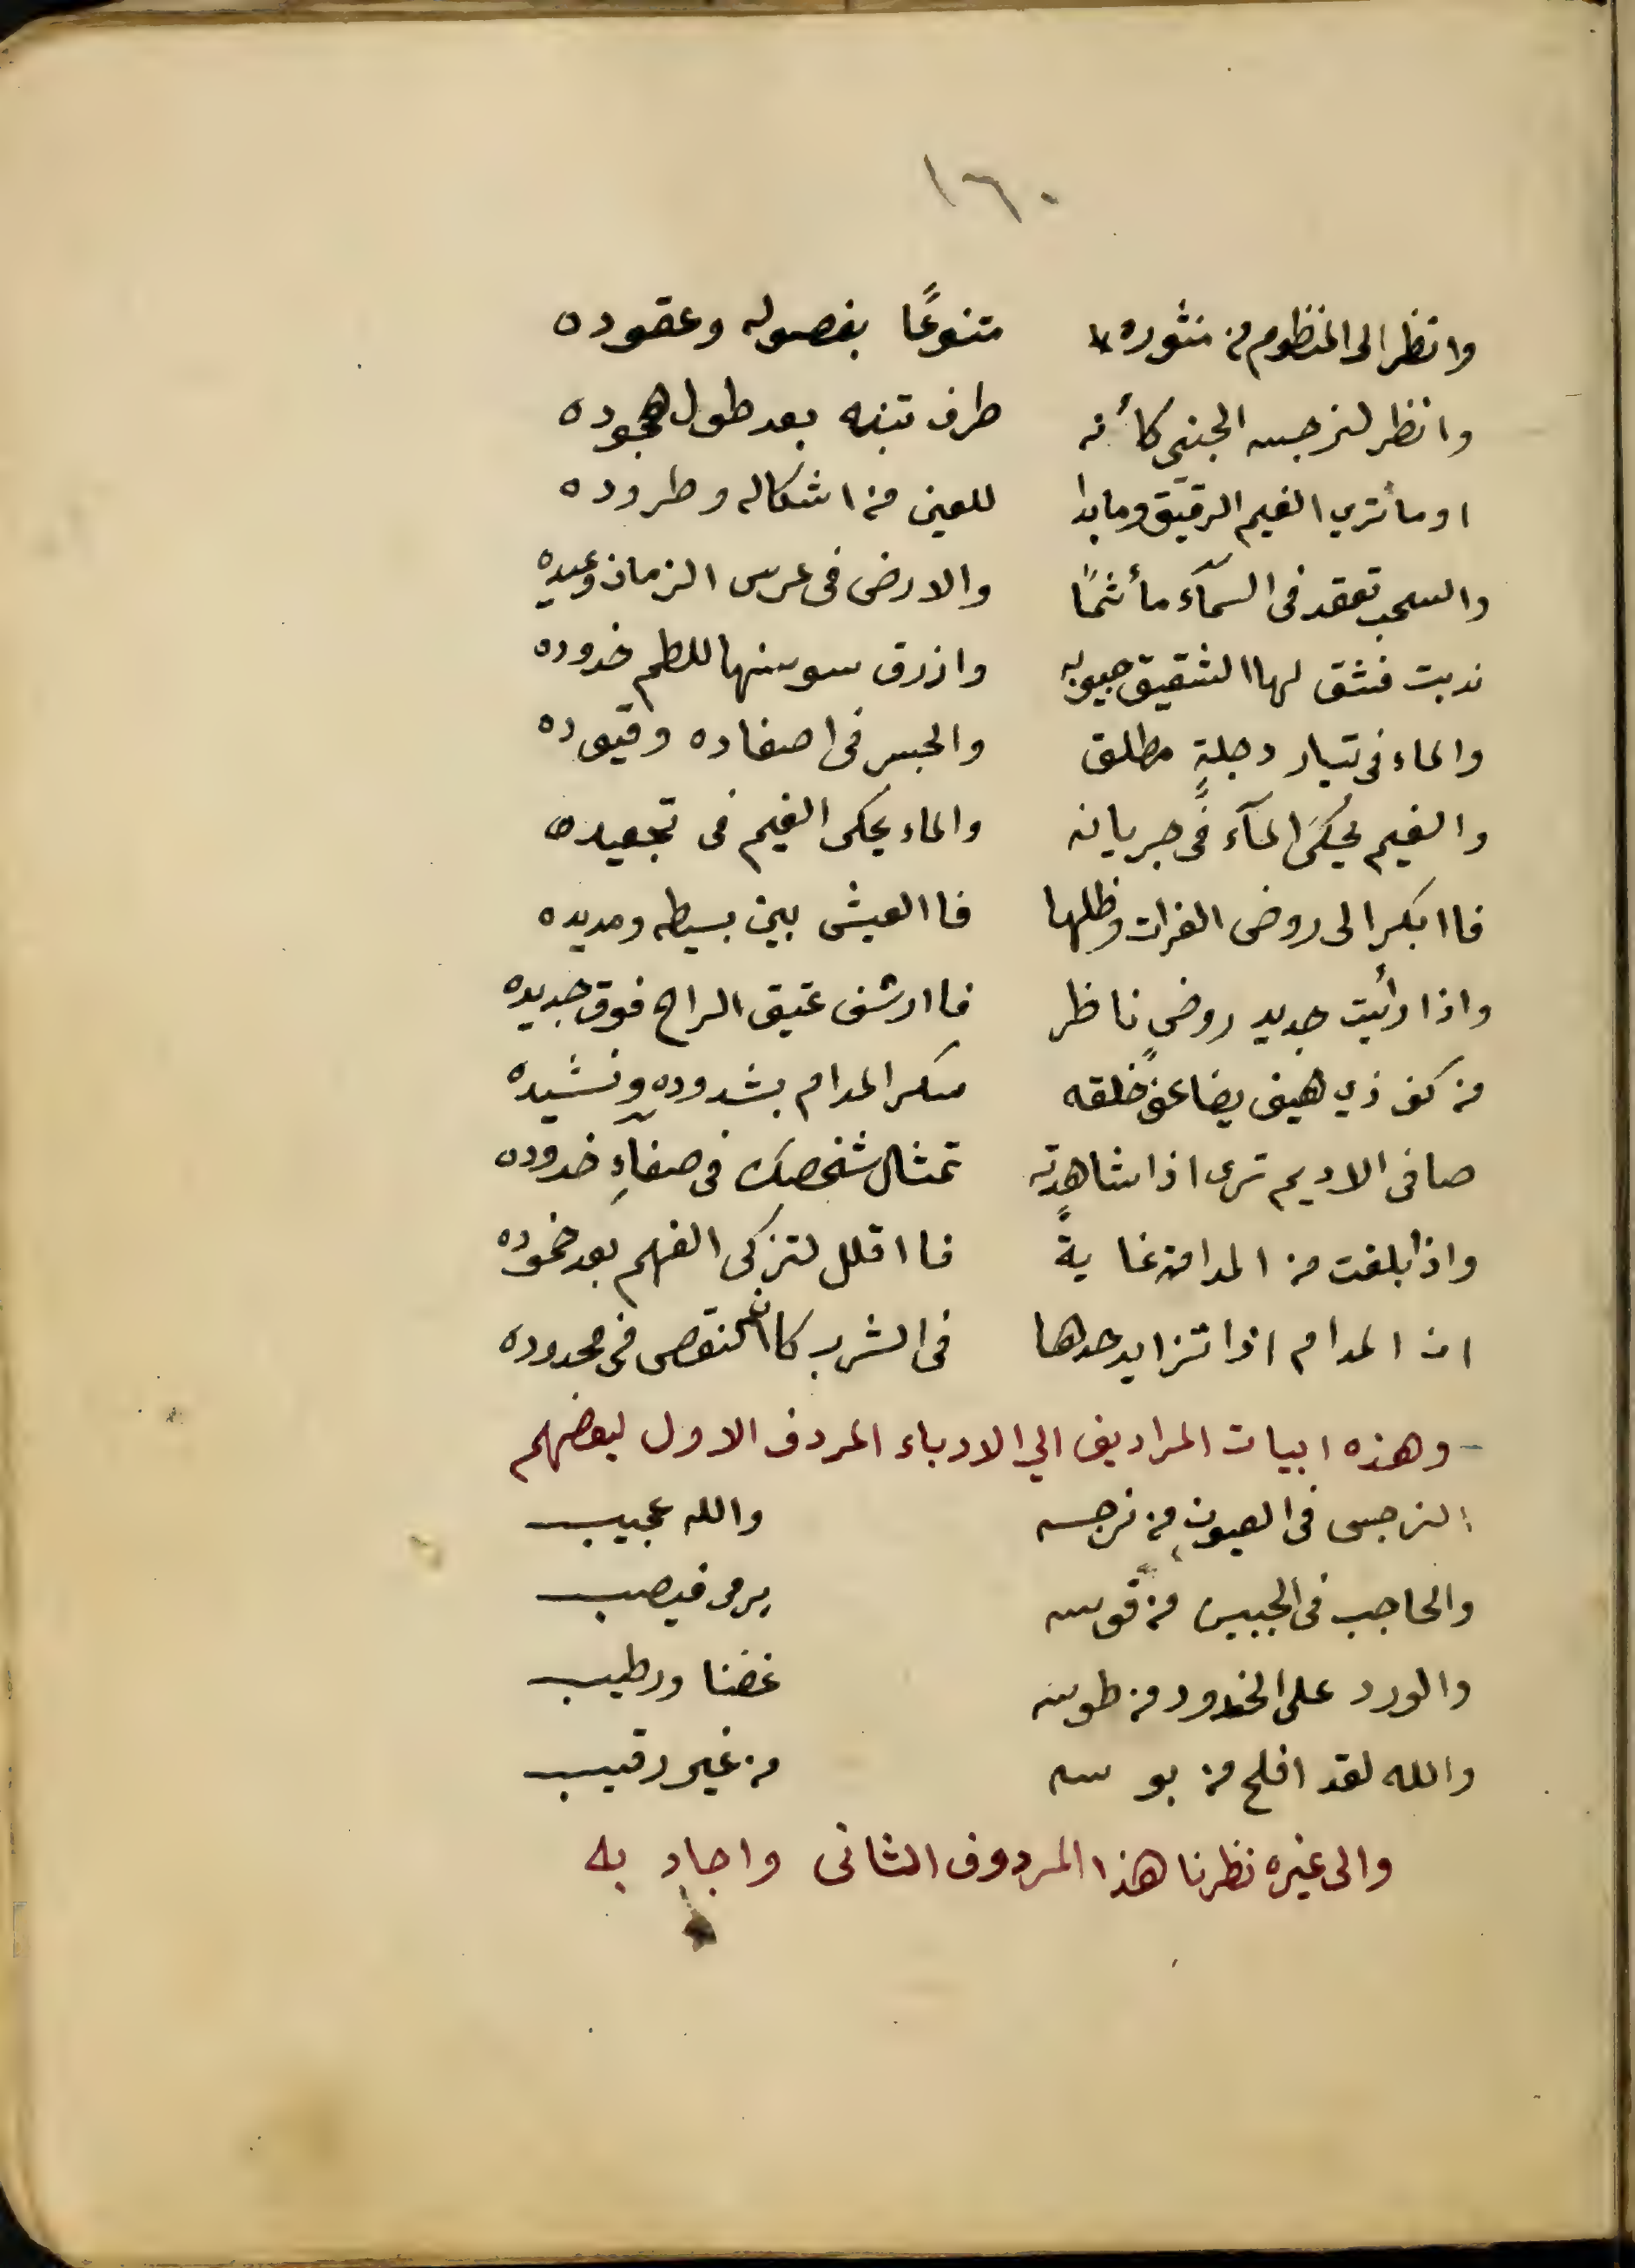 ١٦٠
وانظر الى المنظوم من منثوره متنوعًا بفصوله وعقوده
وانظر لنرجسه الجني كأنه طرف تنبه بعد طول هجوده
اوما ترى الغيم الرقيق وما بدا للعين من اشكاله وطروده
والسحب تعقد في السمآء مأتمًا والارض في عرس الزمان وعيده
ندبت فشق لها الشقيق جيوبه وازرق سوسنها للطم خدوده
والماء في تيار دجلةٍ مطلق والجسر في اصفاده وقيوده
والغيم يحكي المآء في جريانه والماء يحكى الغيم فى تجعيده
فاابكر الى روض الفرات وظلها فاالعيش بين بسيطه ومديده
واذا رأيت جديد روضٍ ناظر فاارشف عتيق الراح فوق جديده
من كف ذي هيف يضاعف خلقه سكر المدام بشدوده ونشيده
صافى الاديم ترى اذا شاهدته تمثال شخصك فى صفاءِ خدوده
واذا بلغت من المدامة غايةً فااقلل لتزكى الفهم بعد خموده
ان المدام اذا تزايد حدها في الشرب كان النقص في محدوده
وهذه ابيات المراديف الي الادباء المردف الاول لبعضهم
النرجس في العيون من نرجسه والله عجيب
والحاجب في الجبين من قوسه يرمى فيصب
والورد على الخدود من طوسه غضنا ورطيب
والله لقد افلح من بوسه من غير رقيب
والى غيره نظرنا هذا المردوف الثانى واجاد به